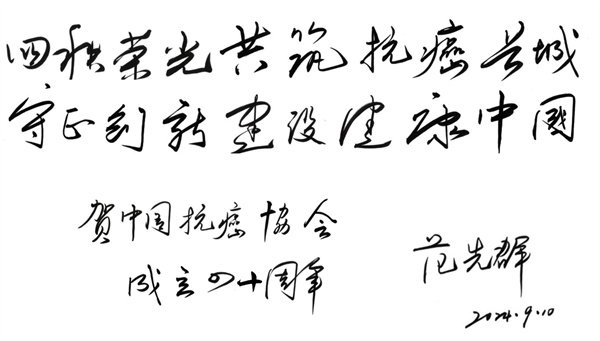 四秩荣光共筑抗癌长城
守正创新建设健康中國
贺中国抗癌协会
成立四十周年
范先群
2024.9.10